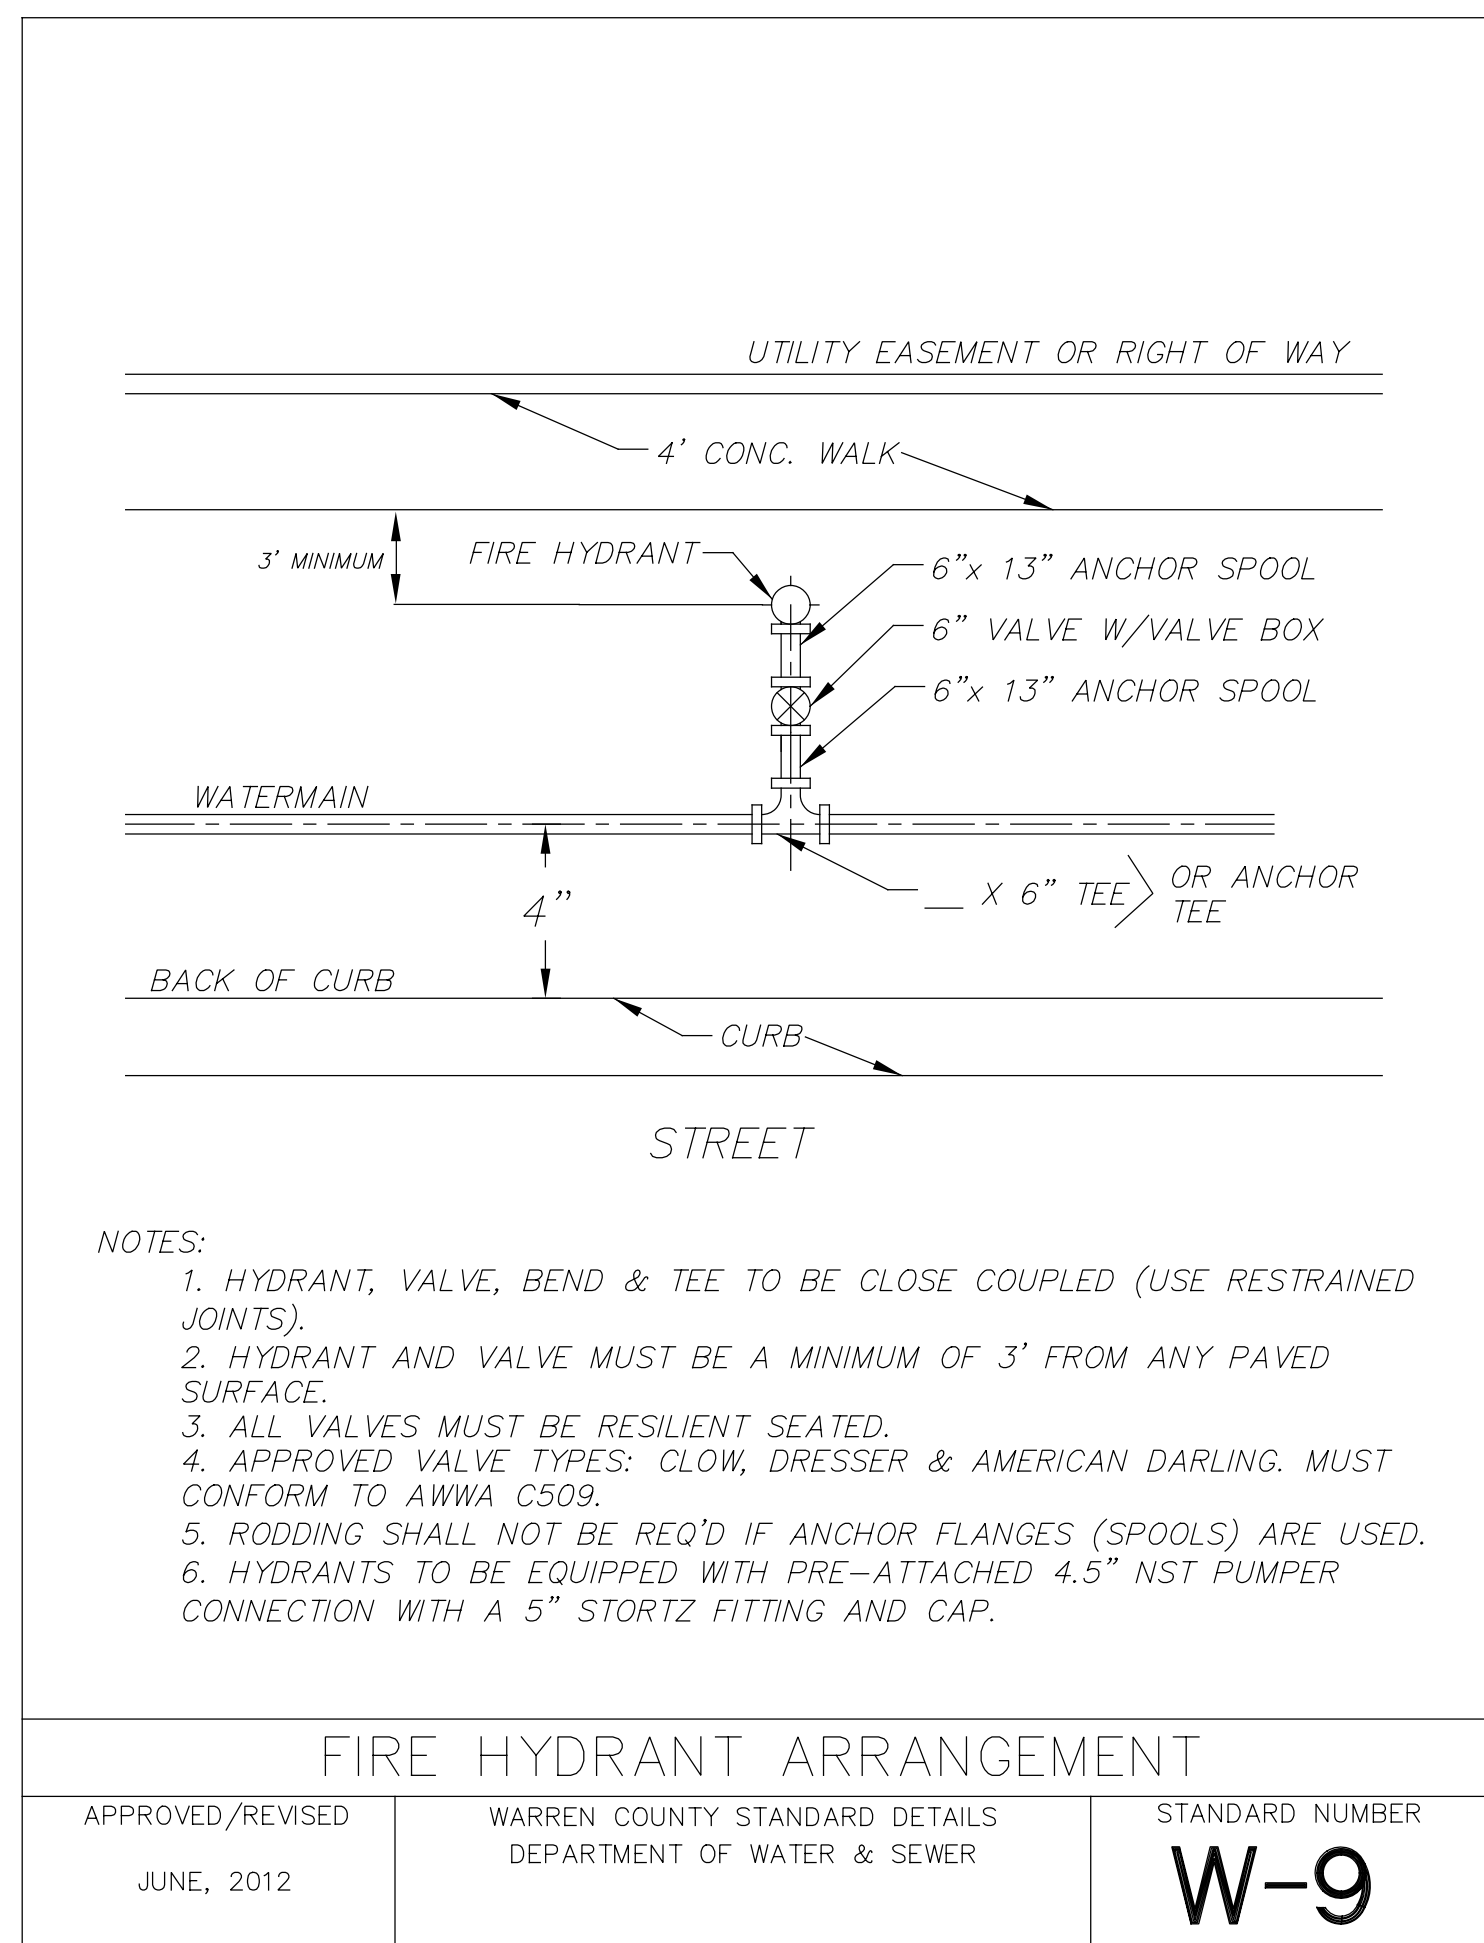 UTILITY EASEMENT OR RIGHT OF WAY
4' CONC. WALK
3' MINIMUM
FIRE HYDRANT
6"x 13" ANCHOR SPOOL
6" VALVE W/VALVE BOX
6"x 13" ANCHOR SPOOL
WATERMAIN
__ X 6" TEE
OR ANCHOR
TEE
4"
BACK OF CURB
CURB
STREET
NOTES:
1. HYDRANT, VALVE, BEND & TEE TO BE CLOSE COUPLED (USE RESTRAINED
JOINTS).
2. HYDRANT AND VALVE MUST BE A MINIMUM OF 3' FROM ANY PAVED
SURFACE.
3. ALL VALVES MUST BE RESILIENT SEATED.
4. APPROVED VALVE TYPES: CLOW, DRESSER & AMERICAN DARLING. MUST
CONFORM TO AWWA C509.
5. RODDING SHALL NOT BE REQ'D IF ANCHOR FLANGES (SPOOLS) ARE USED.
6. HYDRANTS TO BE EQUIPPED WITH PRE-ATTACHED 4.5" NST PUMPER
CONNECTION WITH A 5" STORTZ FITTING AND CAP.
FIRE HYDRANT ARRANGEMENT
APPROVED/REVISED
JUNE, 2012
WARREN COUNTY STANDARD DETAILS
DEPARTMENT OF WATER & SEWER
STANDARD NUMBER
W-9